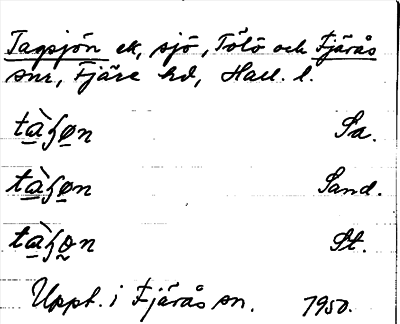 Tagsjön ek, sjö, Tölö och Fjärås
snr, Fjäre hd, Hall. l.
tàɧøn Sa.
tàɧøn Sand.
tàɧo̰n St.
Uppt. i Fjärås sn. 1950.